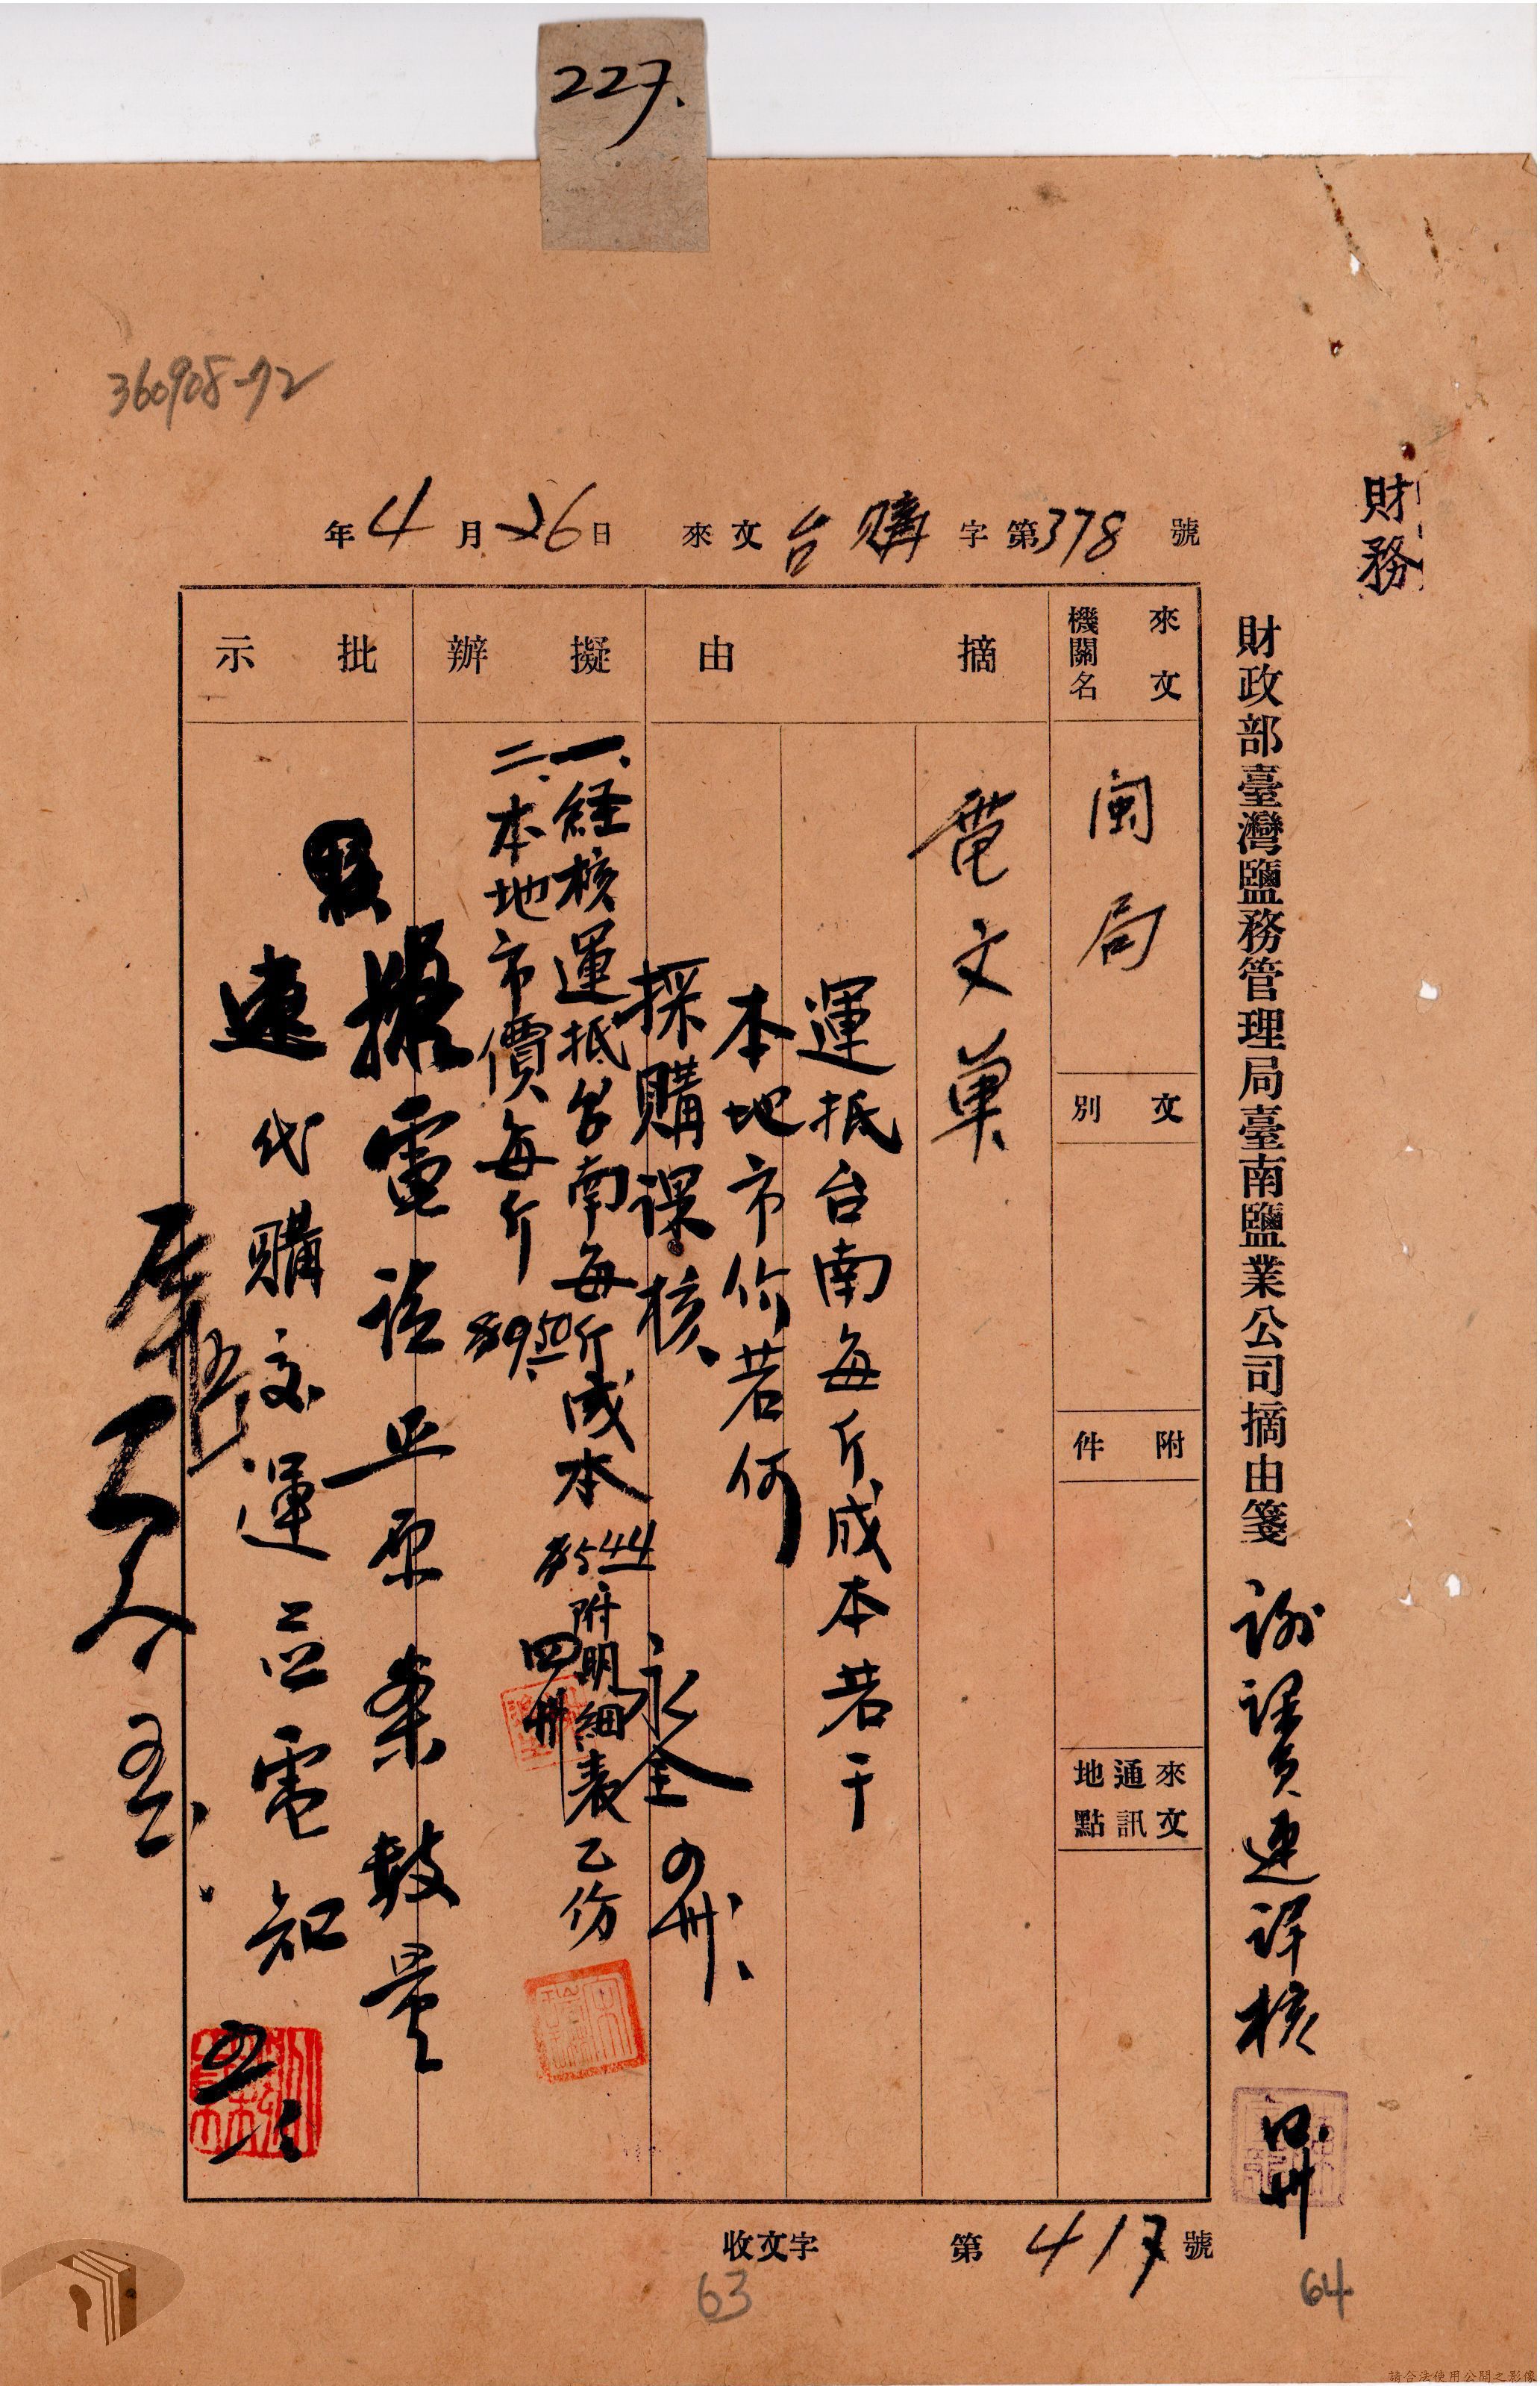 227.
360908-72
財務
年4月26日 來文台購字第378號
財政部臺灣鹽務管理局臺南鹽業公司摘由箋
謝課員速詳核
來文機關名
閩局
文別
附件
來文通訊地點
摘由
電文單
運抵台南每斤成本若干
本地市价若何
採購課核
永全
擬辦
一、経核運抵台南每斤成本$544附明細表乙份
二、本地市價每斤$950
四卅
批示
擬電話
原案
速代購交運
電知
收文字第417號
63
64
請合法使用公開之影像